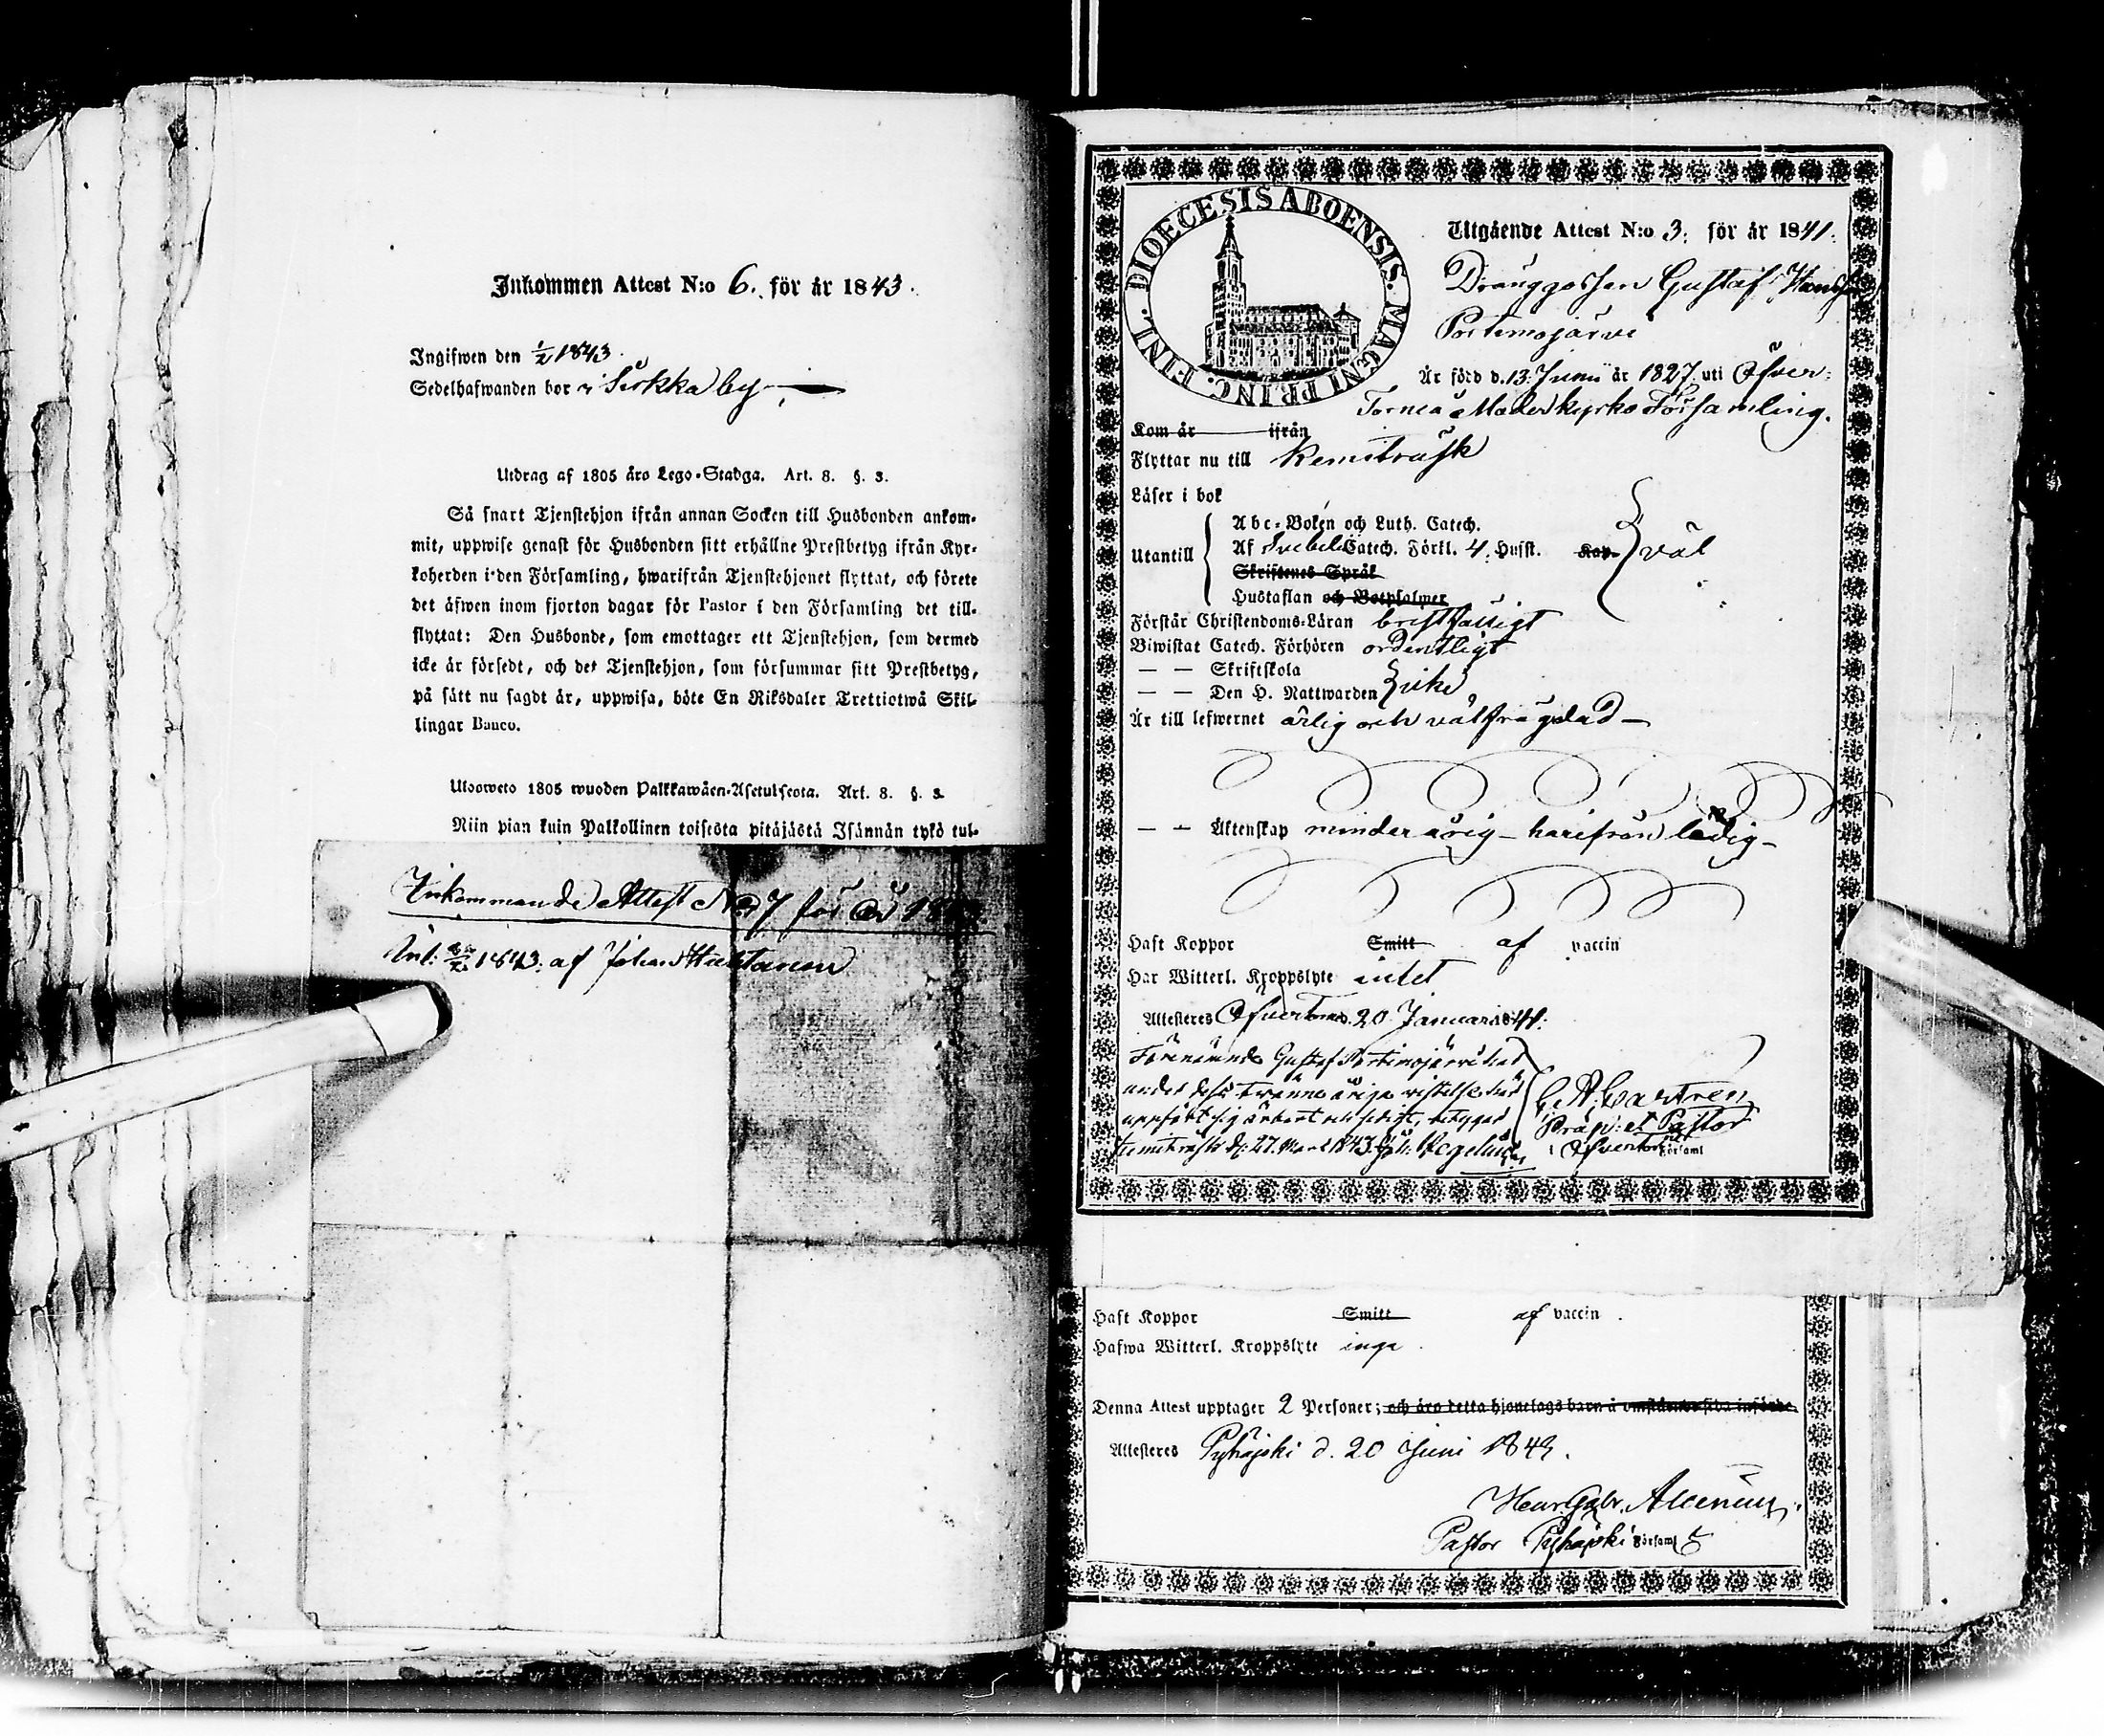 Inkommen Attest N:o 6. för år 1843.
Ingifwen den ½ 1843.
Sedelhafwanden bor i Sirkka by
Utdrag af 1805 års Lego-Stadga. Art. 8. §. 3.
Så snart Tjenstehjon ifrån annan Socken till Husbonden ankom-
mit, uppwise genast för Husbonden sitt erhållne Prestbetyg ifrån Kyr-
koherden i den Församling, hwarifrån Tjenstehjonet flyttat, och förete
det äfwen inom fjorton dagar för Pastor i den Församling det till-
flyttat: Den Husbonde, som emottager ett Tjenstehjon, som dermed
icke är försedt, och det Tjenstehjon, som försummar sitt Prestbetyg,
på sätt nu sagdt är, uppwisa, böte En Riksdaler Trettiotwå Skil-
lingar Banco.
Ulosweto 1805 wuoden Palkkawäen-Asetuksesta. Art. 8. §. 3.
Niin pian kuin Palkollinen toisesta pitäjästä Isännän tykö tul-
Inkommande Attest No 7 för år
1843. af Johan
DIOECESIS ABOENSIS. MAGNI PRINC. FINL.
Utgående Attest N:o 3. för år 1841.
Dränggossen Gustaf
Portimojärvi
Är född d. 13. Junii år 1827, uti Öfver-
Torneå Moderkyrko Församling.
Kom år ifrån
Flyttar nu till Kemiträsk
Läser i bok
Abc-Boken och Luth. Catech.
Utantill Af Svebelii Catech. Förkl. 4. Hufst. Kap. väl
Skriftenes Språk
Hustaflan och Botpsalmer
Förstår Christendoms-Läran bristfälligt
Biwistat Catech. Förhören ordentligt
— — Skriftskola
— — Den H. Nattwarden icke
Är till lefwernet ärlig och välfrägdad —
— — Äktenskap minderårig — härifrån ledig —
Haft Koppor Smitt af vaccin
Har Witterl. Kroppslyte intet
Attesteres Öfvertorneå d. 20 Januarii 1841.
Förenämnde Gustaf Portimojärvi har
under dess tvänne åriga vistelse här
uppfört sig ärbart och sedigt, betygas
Kemiträsk d. 27. Mars 1843.
C. A. Castrén
Präp: et Pastor
i Öfvertorneå Församl
Haft Koppor Smitt af vaccin.
Hafwa Witterl. Kroppslyte inga.
Denna Attest upptager 2 Personer; och äro detta hjonelags barn å omstående sida införde.
Attesteres Pyhäjoki d. 20 Juni 1843.
Henr. Gabr. Alcenius.
Pastor Pyhäjoki Församl